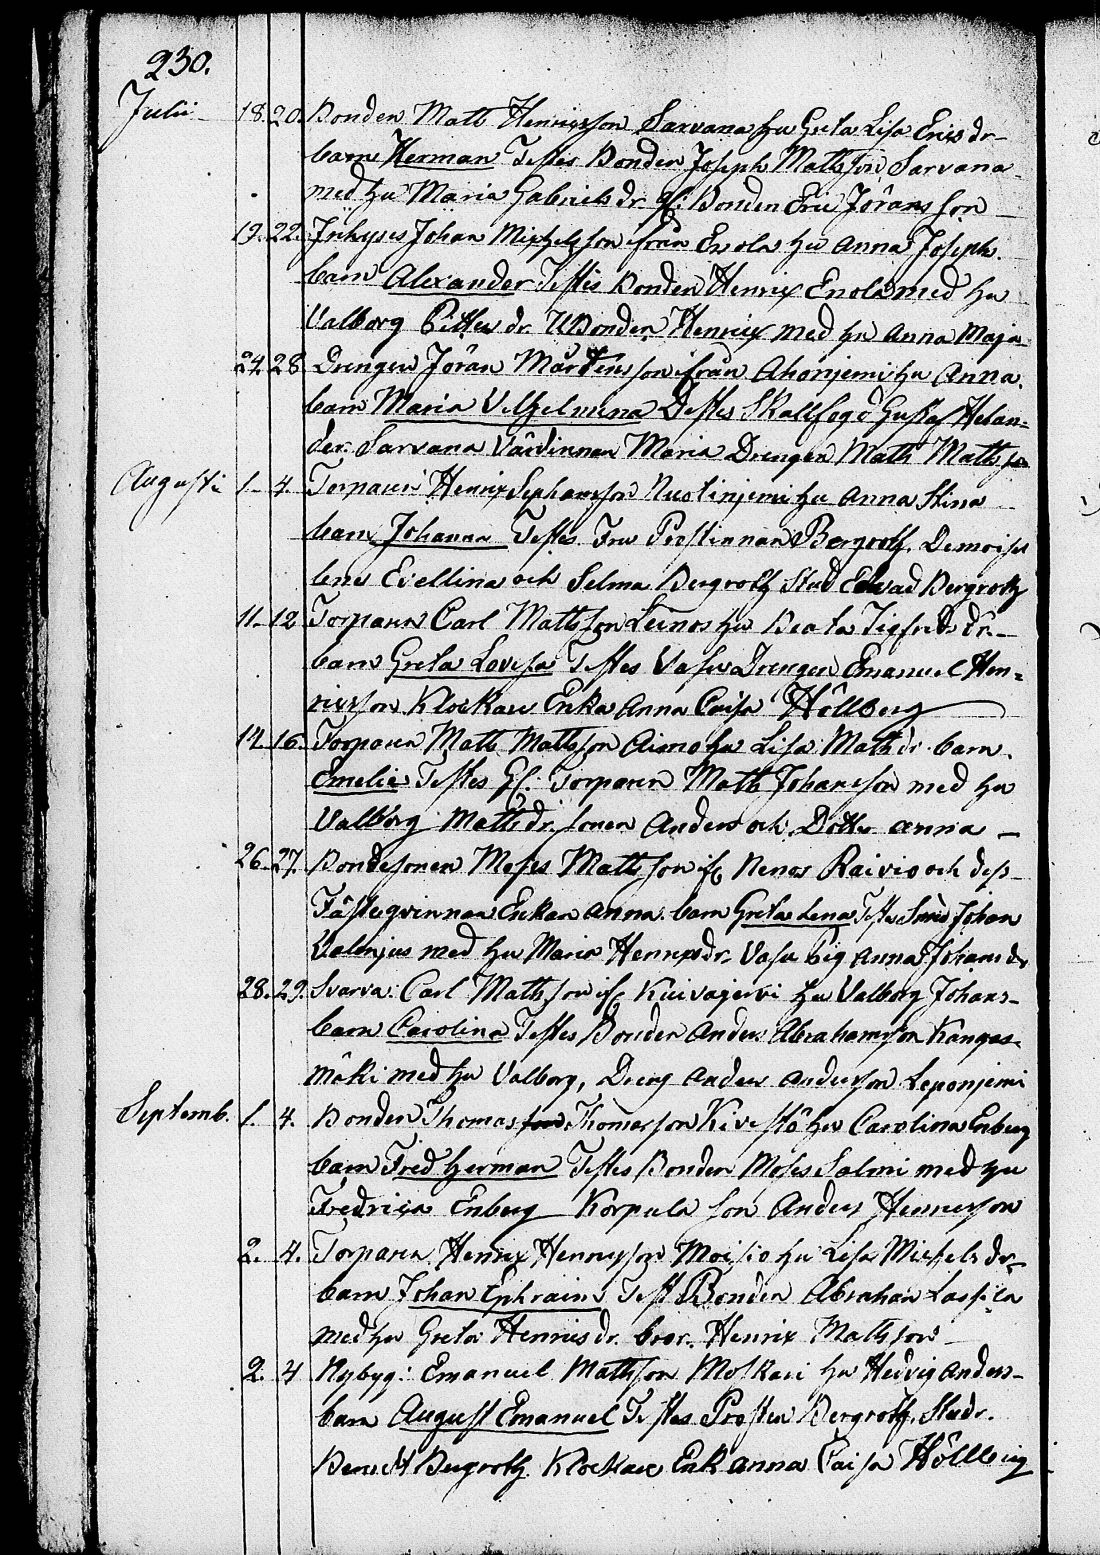 230.
Julii 18. 20. Bonden Matts Henricsson Sarvana hu Greta Lisa Ericsdr
barn Herman Testes Bonden Joseph Mattsson Sarvana
med hu Maria Gabrielsdr. Gl: Bonden Eric Jöransson
19. 22. Inhyses Johan Michelsson ifrån Enola hu Anna Joseph.
barn Alexander Testes Bonden Henrix Enola med hu
Valborg Pittersdr. Bonden Henrix med hu Anna Maja
24. 28 Drengen Jöran Mårtensson ifrån Ahonjemi hu Anna.
barn Maria Velhelmina Testes Skallfogd Gustaf Helan=
der. Sarvana Värdinnan Maria Drengen Matts Mattsson
Augusti 1. 4. Torparen Henrix Nuotinjemi hu Anna Stina
barn Johanna Testes Fru Prostinnan Bergroth. Demoisel
lene Evellina och Selma Bergroth Stud Edvad Bergroth
11. 12 Torparen Carl Mattsson Leinos hu Beata Sigfridsdr.
barn Greta Lovisa Testes Drengen Emanuel Hen=
ricsson Klockare Enka Anna Caisa Hôllberg
14. 16. Torparen Matts Mattsson Aimo hu Lisa Mathsdr barn.
Emelie Testes Gl: Torparen Matts Johansson med hu
Valborg Mattsdr. sonen Anders och Dotter Anna
26. 27. Bondesonen Moses Mattsson if. Raivio och dess
Fästeqvinnan Enkan Anna barn Greta Lena Johan
med hu Maria Henrixdr. Anna Johansdr
28. 29. Svarva: Carl Mattsson if. Kuivajervi hu Valborg Johans-
barn Carolina Testes Bonden Anders Abrahamsson Kangas=
mäki med hu Valborg, Dreng Anders Andersson Leponjemi
Septemb. 1. 4. Bonden Thomas Thomasson Kivestö hu Carolina Enberg
barn Fred Herman Testes Bonden Moses Salmi med hu
Fredrica Enberg Korpula son Anders Henricsson
2. 4. Torparen Henrix Henricsson Moisio hu Lisa Michelsdr
barn Johan Ephraim Test Bonden Abraham Lassila
med hu Greta Henricsdr. bror. Henrix Mattsson
2. 4 Nybyg: Emanuel Mattsson Molkari hu Hedvig Anders-
barn August Emanuel Testes Prosten Bergroth, Studr.
Bergroth Klockare Enk Anna Caisa Hôllberg